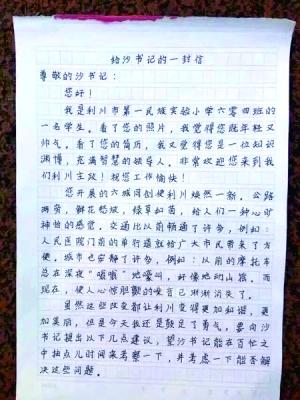 给沙书记的一封信
尊敬的沙书记:
您好!
我是利川市第一民族实验小学六零四班的
一名学生。看了您的照片,我觉得您既年轻又
帅气。看了您的简历,我又觉得您是一位知识
渊博,充满智慧的领导人。非常欢迎您来到我
们利川主政!祝您工作愉快!
您开展的六城同创使利川焕然一新。公路
两旁,鲜花怒放,绿草如茵,给人们一种心旷
神怡的感觉。交通比以前畅通了许多,例如:
人民医院门前的单行道就给广大市民带来了方
便。城市也安静了许多,例如:以前的摩托车
总在深夜“嗷嗷”地嚎叫,好像地动山摇。而
现在,使人心惊胆颤的噪音已渐渐消失了。
虽然这些改变都让利川变得更加和谐,更
加美丽,但是今天我还是鼓足了勇气,要向沙
书记提出以下几点建议,望沙书记能在百忙之
中抽点儿时间来考察一下,并考虑一下能否解
决这些问题。